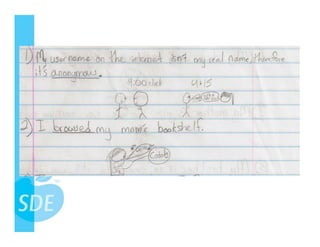 1) My username on the internet isn't my real name, therefore
it's anonymous.
4:15
2) I browsed my mom's bookshelf.
SDE